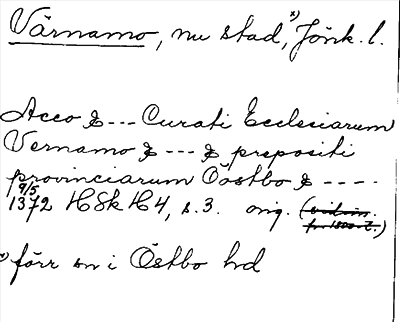 Värnamo, nu stad, x) Jönk. l.
Acco & --- Curati Ecclesiarum
Vernamo & --- & prepositi
provinciarum Oostbo & ----
9/5
1372 HSkH4, s. 3. orig. (vidim.
fr. 1500-t.)
x) förr sn i Östbo hd